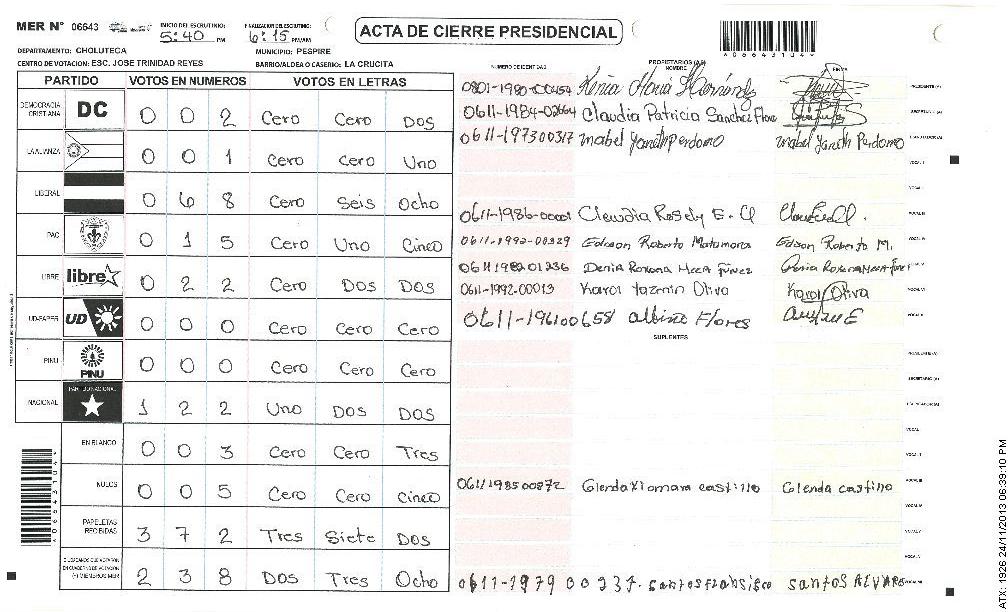 MER N° 06643 INICIO DEL ESCRUTINIO: 5:40 PM FINALIZACION DEL ESCRUTINIO: 6:15 PM/AM ACTA DE CIERRE PRESIDENCIAL
DEPARTAMENTO: CHOLUTECA MUNICIPIO: PESPIRE
CENTRO DE VOTACION: ESC. JOSE TRINIDAD REYES BARRIO/ALDEA O CASERIO: LA CRUCITA
PARTIDO VOTOS EN NUMEROS VOTOS EN LETRAS NUMERO DE IDENTIDAD PROPIETARIOS (AS) NOMBRE FIRMA
DEMOCRACIA CRISTIANA DC 0 0 2 Cero Cero Dos
LA ALIANZA 0 0 1 Cero Cero Uno
LIBERAL 0 6 8 Cero Seis Ocho
PAC 0 1 5 Cero Uno Cinco
LIBRE libre 0 2 2 Cero Dos Dos
UD-FAPER UD 0 0 0 Cero Cero Cero
PINU PINU 0 0 0 Cero Cero Cero
NACIONAL PARTIDO NACIONAL 1 2 2 Uno Dos Dos
EN BLANCO 0 0 3 Cero Cero Tres
NULOS 0 0 5 Cero Cero Cinco
PAPELETAS RECIBIDAS 3 7 2 Tres Siete Dos
2 3 8 Dos Tres Ocho
0801-1980-00454 Hernández PRESIDENTE (A)
0611-1984-00664 Claudia Patricia Sanchez Flore
0611-197300317 Mabel Yaneth Perdomo Mabel Yaneth Perdomo
0611-1986-00001 Claudia Rosely E. C
0611-1992-00329 Edison Roberto Matamora Edson Roberto M.
0611198201236 Denia Roxana Meza Funez Denia Roxana Meza Funez
0611-1992-00013 Karol Yazmin Oliva Karol Oliva
0611-196100658 Albino Flores
SUPLENTES
0611-198500872 Glenda Xiomara castillo Glenda castillo
0611-1979 00237. santos fransisco santos ALVARO
ATX: 1926 24/11/2013 06:39:10 PM